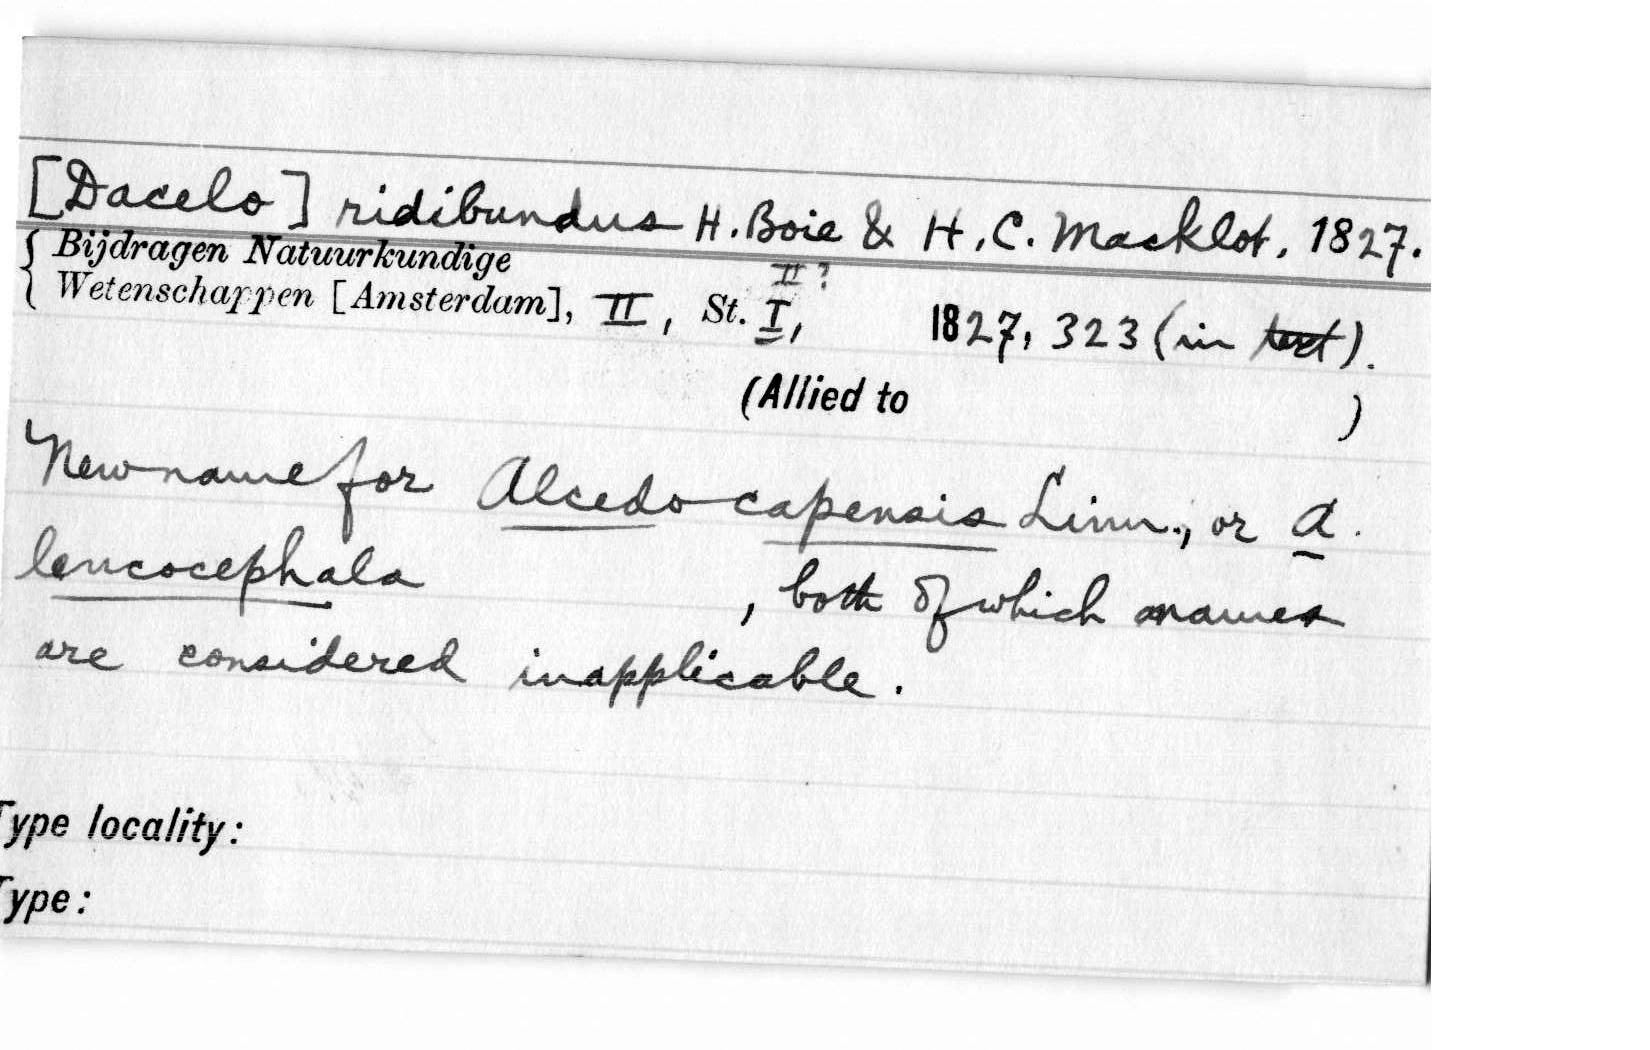 [Dacelo] ridibundus H. Boie & H. C. Macklot, 1827.
{ Bijdragen Natuurkundige
II ?
Wetenschappen [Amsterdam], II, St. I, 1827, 323 (in text).
(Allied to )
New name for Alcedo capensis Linn., or A.
leucocephala , both of which names
are considered inapplicable.
Type locality:
Type: